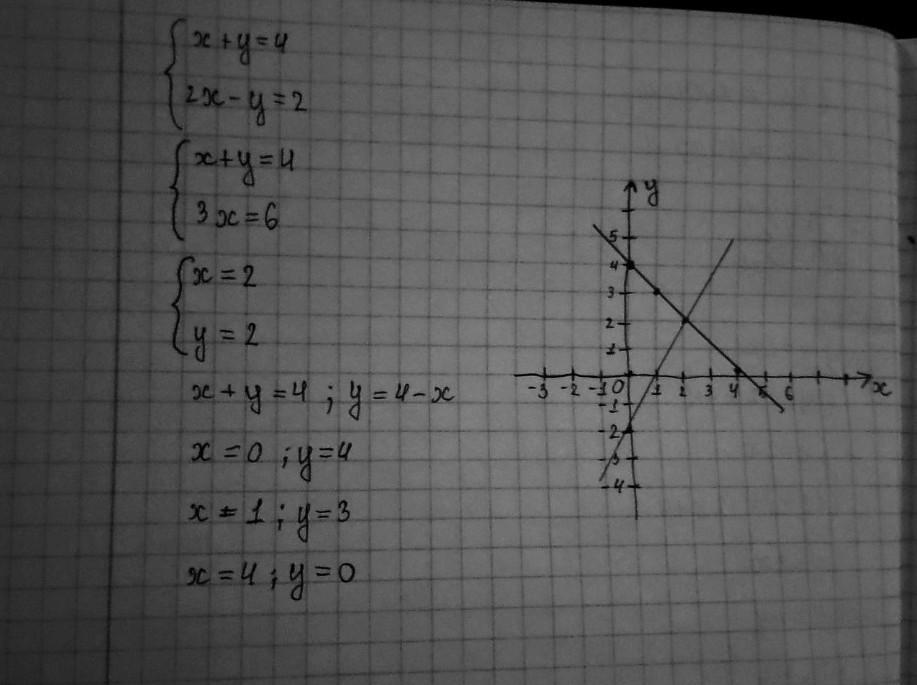 x+y=4
2x-y=2
x+y=4
3x=6
x=2
y=2
x+y=4 ; y=4-x
x=0 ; y=4
x=1 ; y=3
x=4 ; y=0
y
5
4
3
2
1
-3 -2 -1 0 1 2 3 4 5 6 x
-1
-2
-3
-4